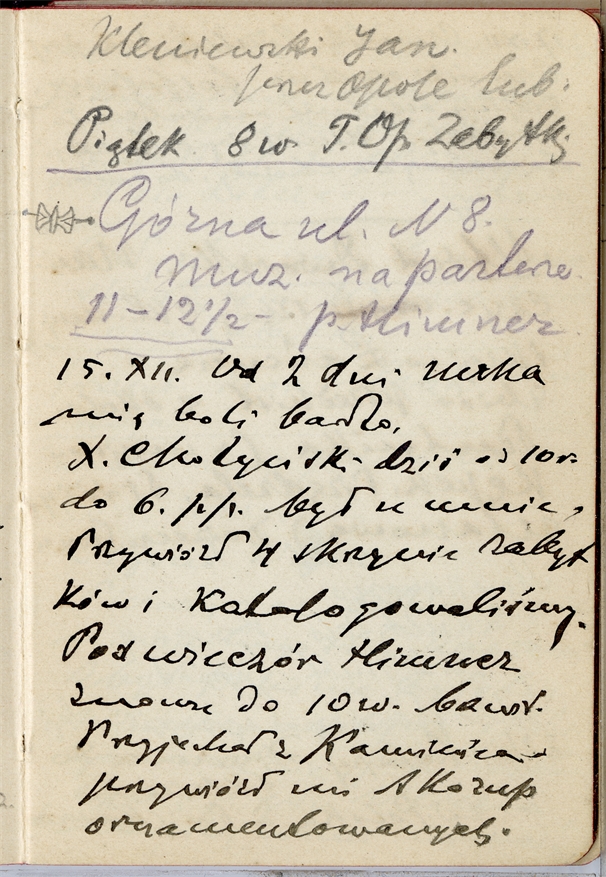 Kleniewski Jan.
przez Opole lub.
Piątek 8 w. T. Op. Zabytk.
Górna ul. N 8.
muz. na parterze
11 – 12 1/2 – p. Himner
15. XII. Od 2 dni nerka
mię boli bardzo.
X. Chotyński dziś od 10 r.
do 6. p. p. był u mnie,
Przywiózł 4 skrzynie zabyt
ków i katalogowaliśmy.
Pod wieczór Himner
znowu do 10 w. bawił.
Przyjechał z Kamieńca
przywiózł mi skorup
ornamentowanych.